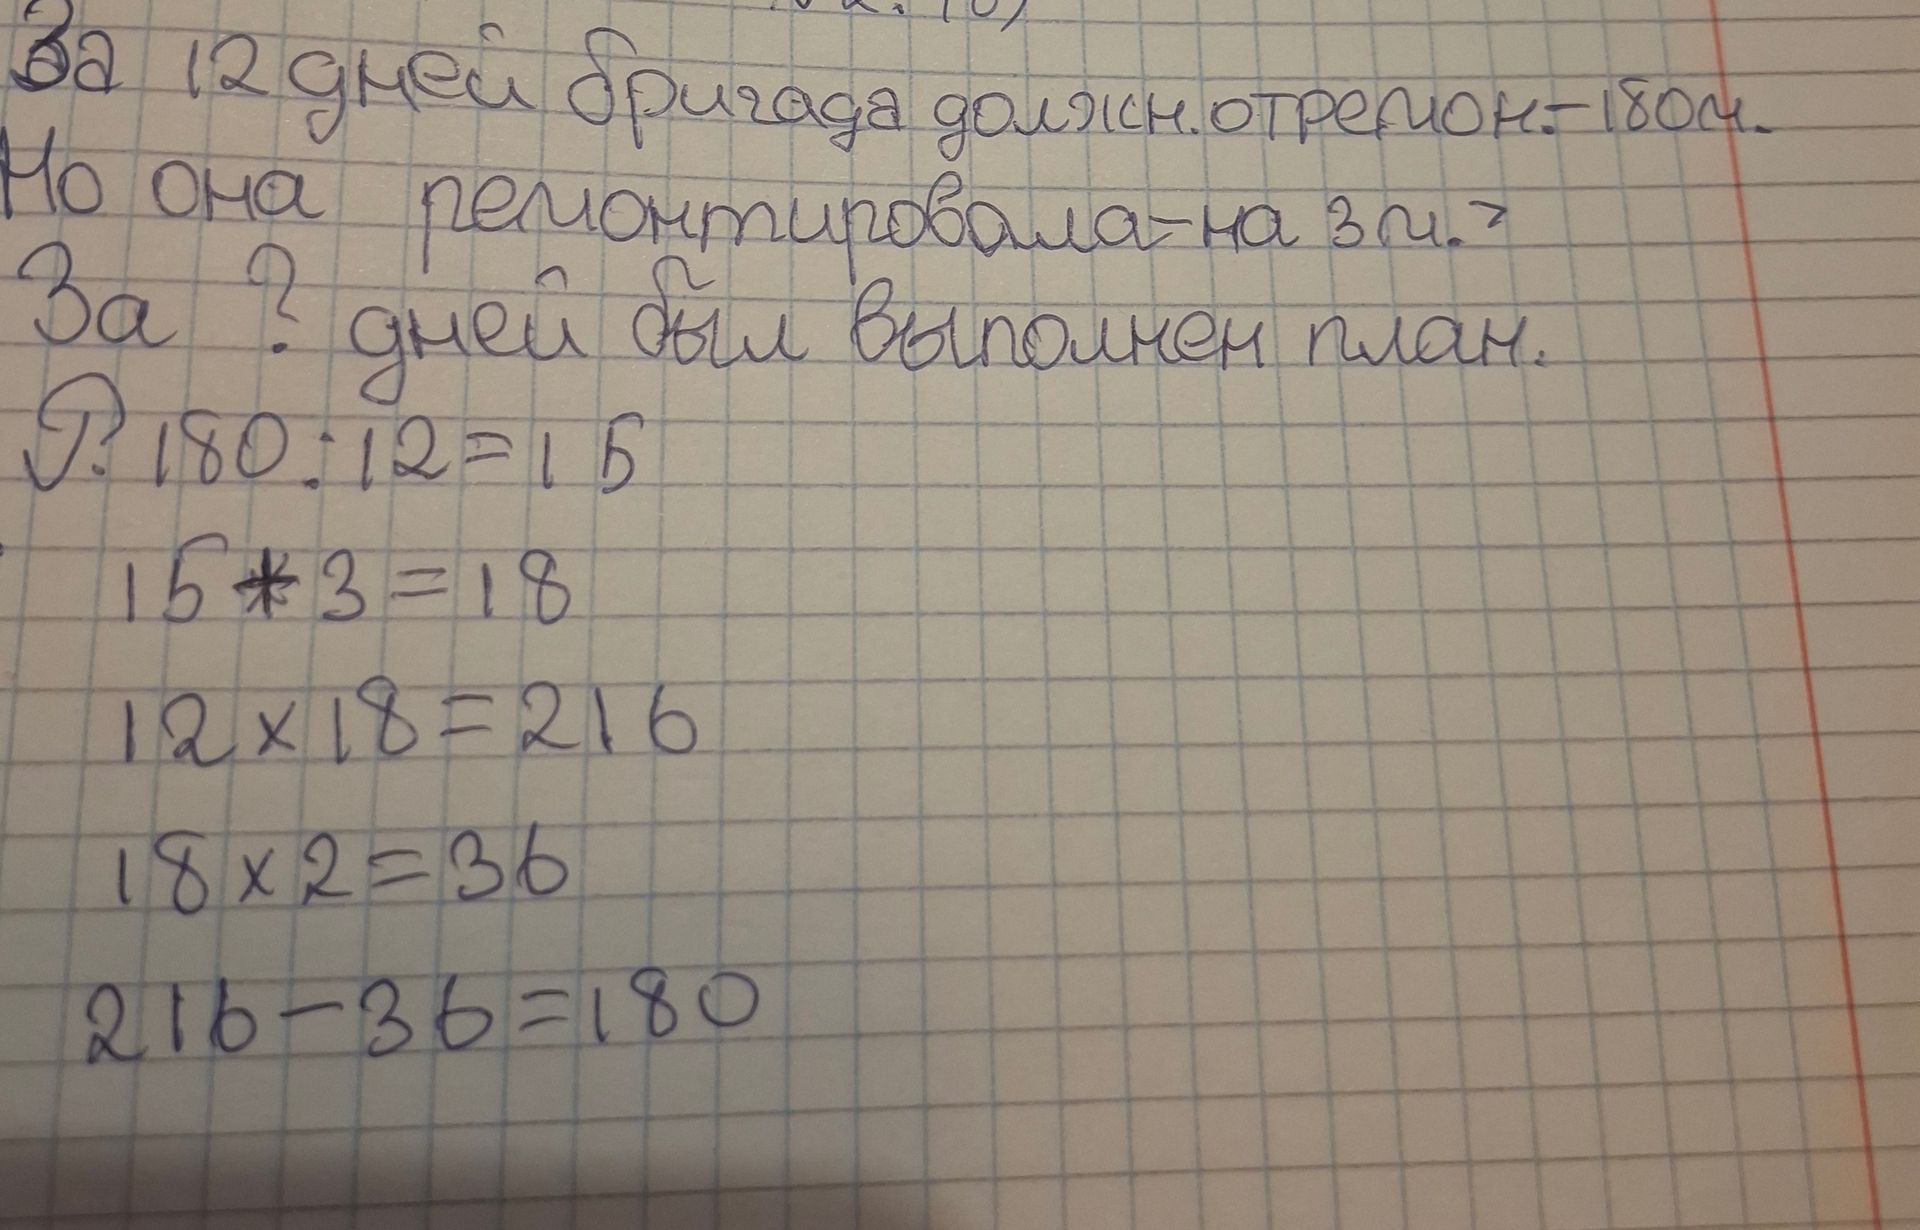 За 12 дней бригада должн. отремон.-180м.
Но она ремонтировала-на 3м.>
За ? дней был выполнен план.
Р. 180:12=15
15*3=18
12×18=216
18×2=36
216-36=180